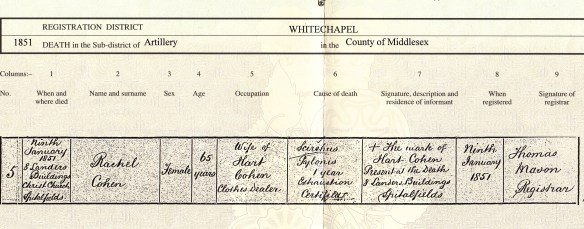 REGISTRATION DISTRICT WHITECHAPEL
1851 DEATH in the Sub-district of Artillery in the County of Middlesex
Columns:- 1 2 3 4 5 6 7 8 9
No. When and where died Name and surname Sex Age Occupation Cause of death Signature, description and residence of informant When registered Signature of registrar
5
Ninth
January
1851
8 Landers
Buildings
Christ Church
Spitalfields
Rachel
Cohen
Female
65
years
Wife of
Hart
Cohen
Clothes Dealer
Scirrhus
Pylorus
1 year
Exhaustion
Certified
+ The mark of
Hart Cohen
Present at the Death
8 Landers Buildings
Spitalfields
Ninth
January
1851
Thomas
Registrar